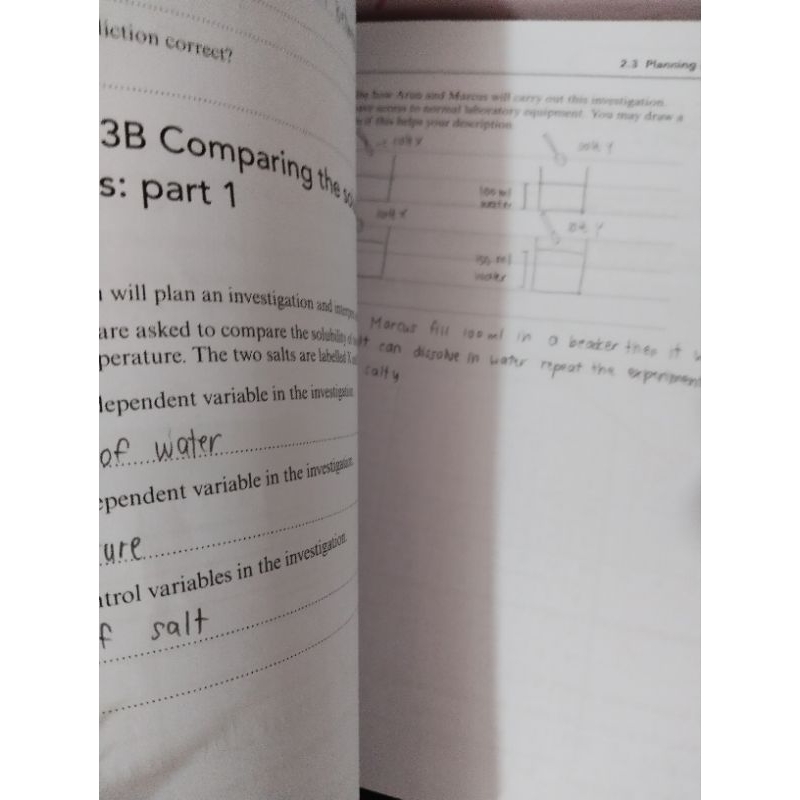 diction correct?
3B Comparing the
s: part 1
will plan an investigation and
are asked to compare the solubility of
perature. The two salts are labelled X
dependent variable in the investigation.
of water
ependent variable in the investigation.
ure
ntrol variables in the investigation.
f salt
2.3 Planning
how Arun and Marcus will carry out this investigation.
access to normal laboratory equipment. You may draw a
if this helps your description.
100 ml
water
salt Y
150 ml
water
Marcus fill 100 ml in a beaker then it
it can dissolve in water repeat the experiment
salty